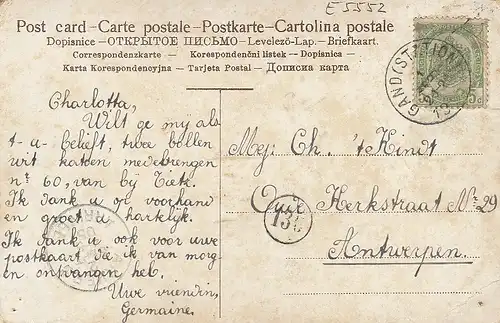 E 5552
Post card – Carte postale – Postkarte – Cartolina postale
Dopisnice – ОТКРЫТОЕ ПИСЬМО – Levelező-Lap. – Briefkaart.
Correspondenzkarte – Korespondenční listek – Dopisnica –
Karta Korespondencyjna – Tarjeta Postal – Дописна карта
GAND (STATION)
5c
Charlotta,
Wilt ge mij als
t-u-belieft, twee bollen
wit katoen medebrengen
nr 60, van bij Tietz.
Ik dank u op voorhand
en groet u hartelijk.
Ik dank u ook voor uwe
postkaart die ik van morg-
en ontvangen heb.
Uwe vriendin,
Germaine.
Mej: Ch. 't Kindt
Oude Kerkstraat № 29
Antwerpen.